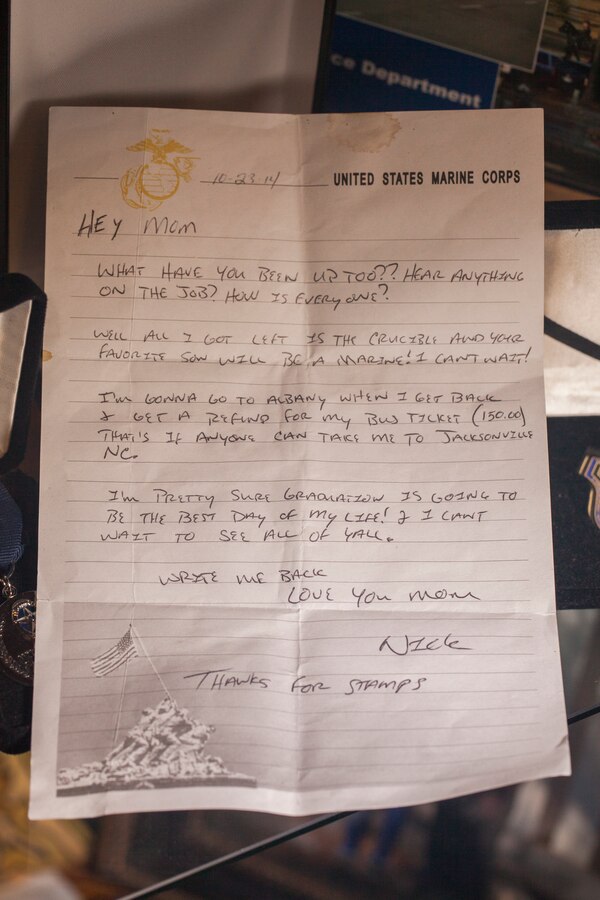 ce Department
10-23-14 UNITED STATES MARINE CORPS
HEY MOM
WHAT HAVE YOU BEEN UP TOO?? HEAR ANYTHING
ON THE JOB? HOW IS EVERYONE?
WELL ALL I GOT LEFT IS THE CRUCIBLE AND YOUR
FAVORITE SON WILL BE A MARINE! I CANT WAIT!
I'M GONNA GO TO ALBANY WHEN I GET BACK
& GET A REFUND FOR MY BUS TICKET (150.00)
THAT'S IF ANYONE CAN TAKE ME TO JACKSONVILLE
NC.
I'M PRETTY SURE GRADUATION IS GOING TO
BE THE BEST DAY OF MY LIFE! & I CANT
WAIT TO SEE ALL OF YALL.
WRITE ME BACK
LOVE YOU MOM
NICK
THANKS FOR STAMPS